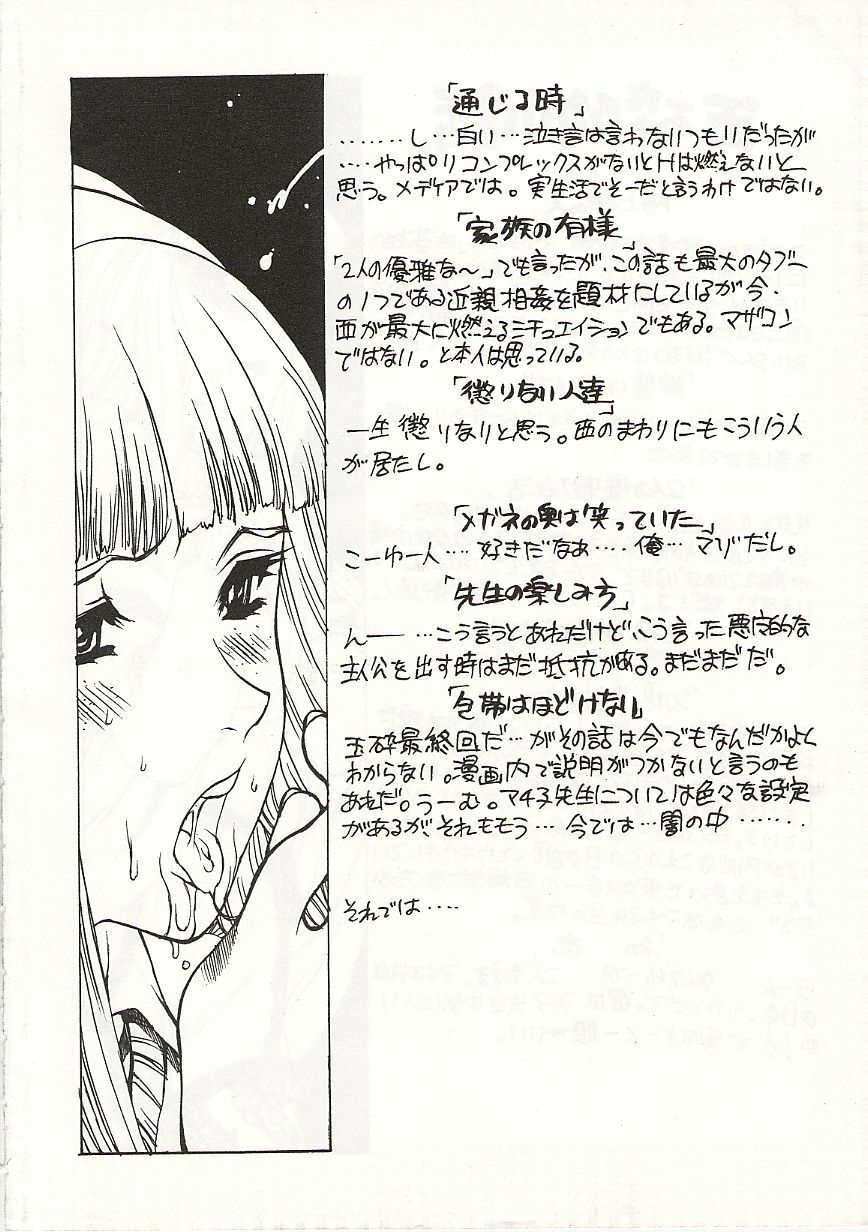 「通じる時」
・・・・・・・し…白い…泣き言は言わないつもりだったが
・・・・やっぱりコンプレックスがないとHは燃えないと
思う。メディアでは。実生活でそーだと言うわけではない。
「家族の有様」
「2人の優雅な〜」でも言ったが、この話も最大のタブー
の1つである近親相姦を題材にしているが今、
西が最大に燃えるシチュエイションでもある。マザコン
ではない。と本人は思っている。
「懲りない人達」
一生懲りないと思う。西のまわりにもこういう人
が居たし。
「メガネの奥は笑っていた」
こーゆー人・・・・好きだなあ・・・・俺…マゾだし。
「先生の楽しみ方」
んー…こう言うとあれだけど、こう言った悪定的な
主人公を出す時はまだ抵抗がある。まだまだだ。
「包帯はほどけない」
玉砕最終回だ…がその話は今でもなんだかよく
わからない。漫画内で説明がつかないと言うのも
あれだ。うーむ。マチ子先生については色々な設定
があるが、それももう…今では…闇の中・・・・・・・
それでは・・・・